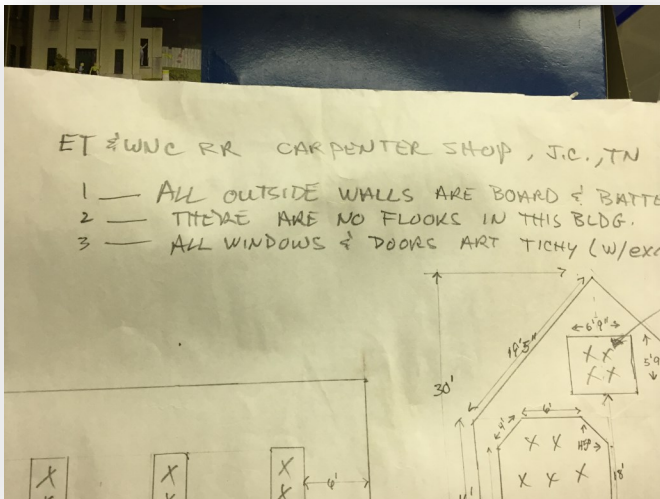 ET & WNC RR CARPENTER SHOP, J.C., TN
1 — ALL OUTSIDE WALLS ARE BOARD & BATTE
2 — THERE ARE NO FLOORS IN THIS BLDG.
3 — ALL WINDOWS & DOORS ART TICHY (W/exc
19'5"
6'9"
X X
X X
5'9
30'
6'
4'
X X
X X X
18'
X
X
X
X
X
X
6'